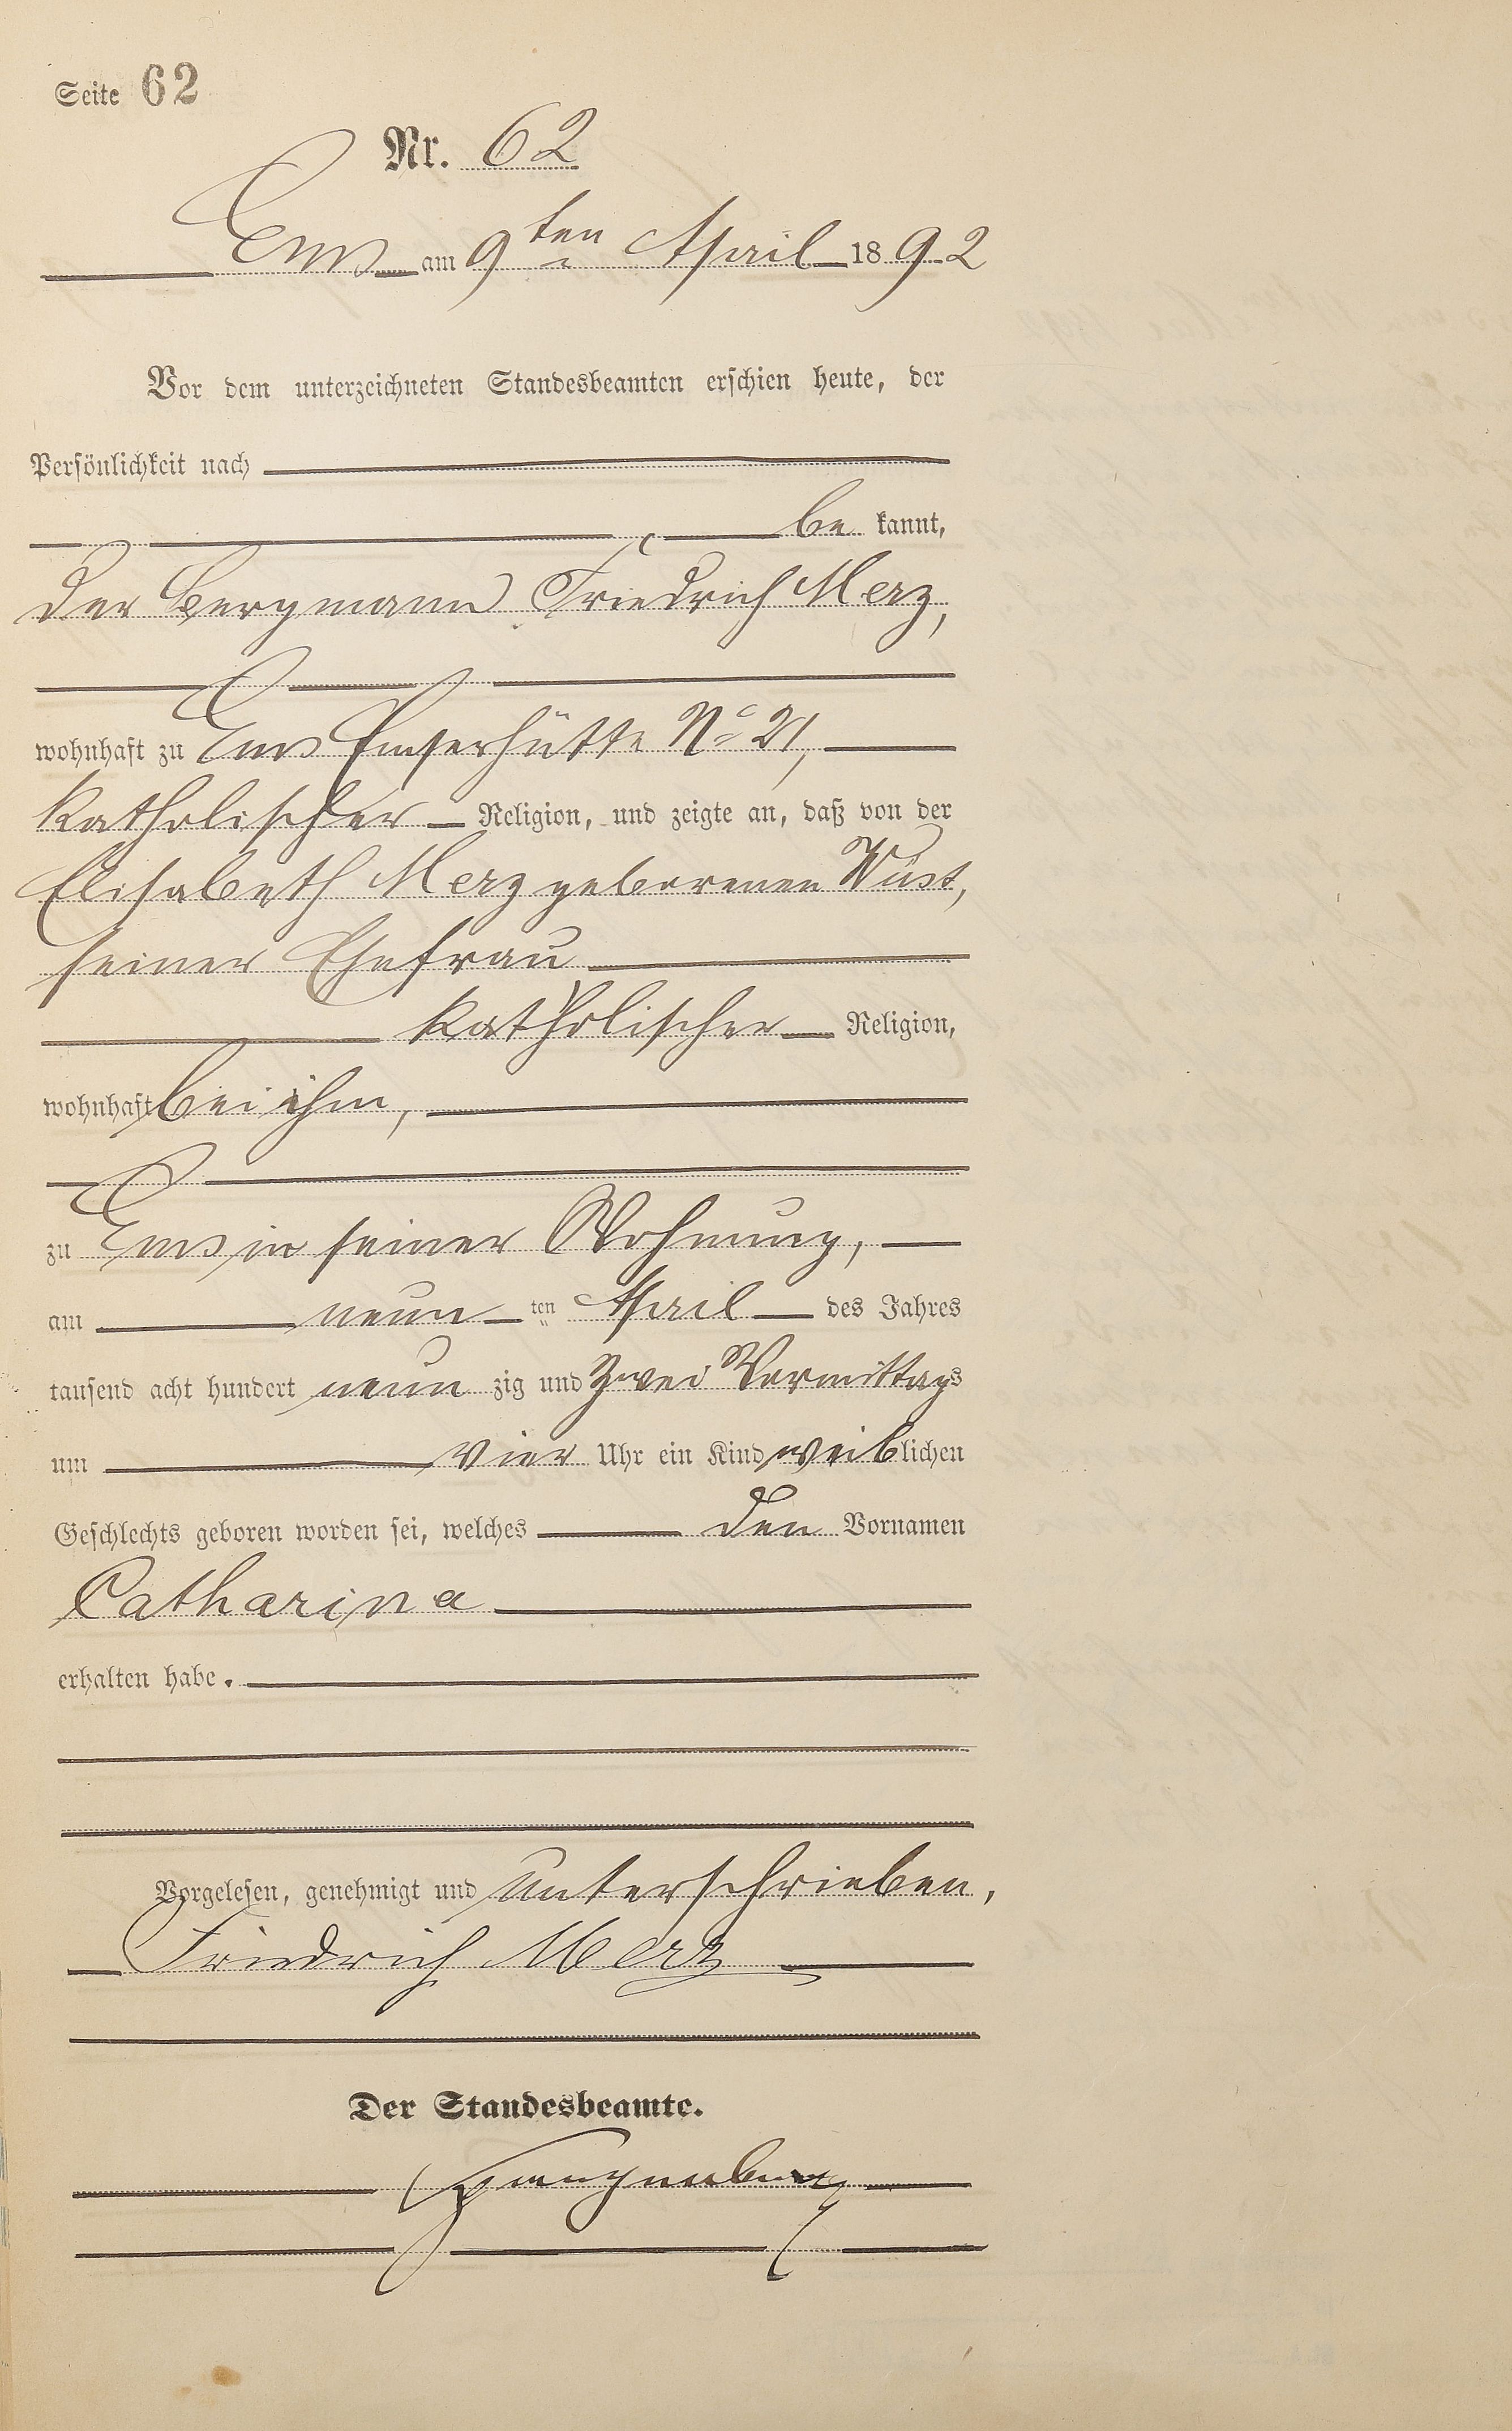 Seite 62
Nr. 62
Ems am 9ten April 1892
Vor dem unterzeichneten Standesbeamten erschien heute, der
Persönlichkeit nach
be kannt,
der Bergmann Friedrich Merz,
wohnhaft zu Ems Emserhütte No 21,
katholischer Religion, und zeigte an, daß von der
Elisabeth Merz geborenen Wüst,
seiner Ehefrau
katholischer Religion,
wohnhaft bei ihm,
zu Ems in seiner Wohnung,
am neun ten April des Jahres
tausend acht hundert neun zig und zwei Vormittags
um vier Uhr ein Kind weiblichen
Geschlechts geboren worden sei, welches den Vornamen
Catharina
erhalten habe.
Vorgelesen, genehmigt und unterschrieben,
Friedrich Merz
Der Standesbeamte.